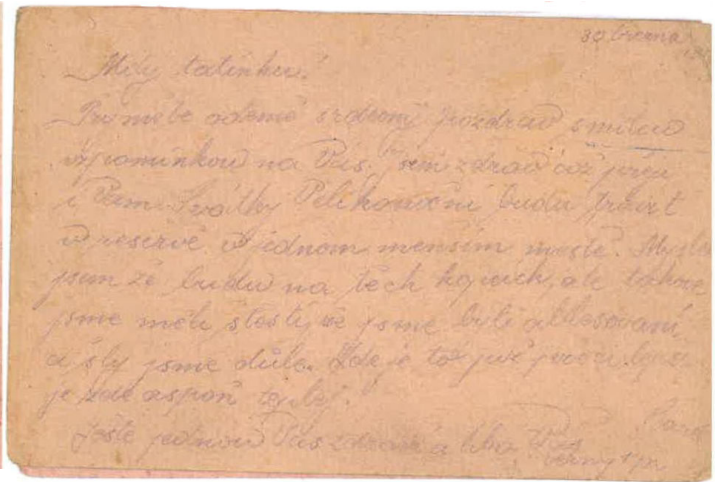 30 března
Milý tatínku!
Přijměte odemě srdečný pozdrav s milou
vzpomínkou na Vás. Jsem zdráv což přeji
i Vám. Svátky Velikonoční budu trávit
v reservě v jednom menším městě. Myslel
jsem že budu na těch kopcích, ale takhle
jsme měli štěstí, že jsme byli
a šly jsme důle. Zde je to
je zde aspoň
Ještě jednou Vás zdraví a líbá Váš